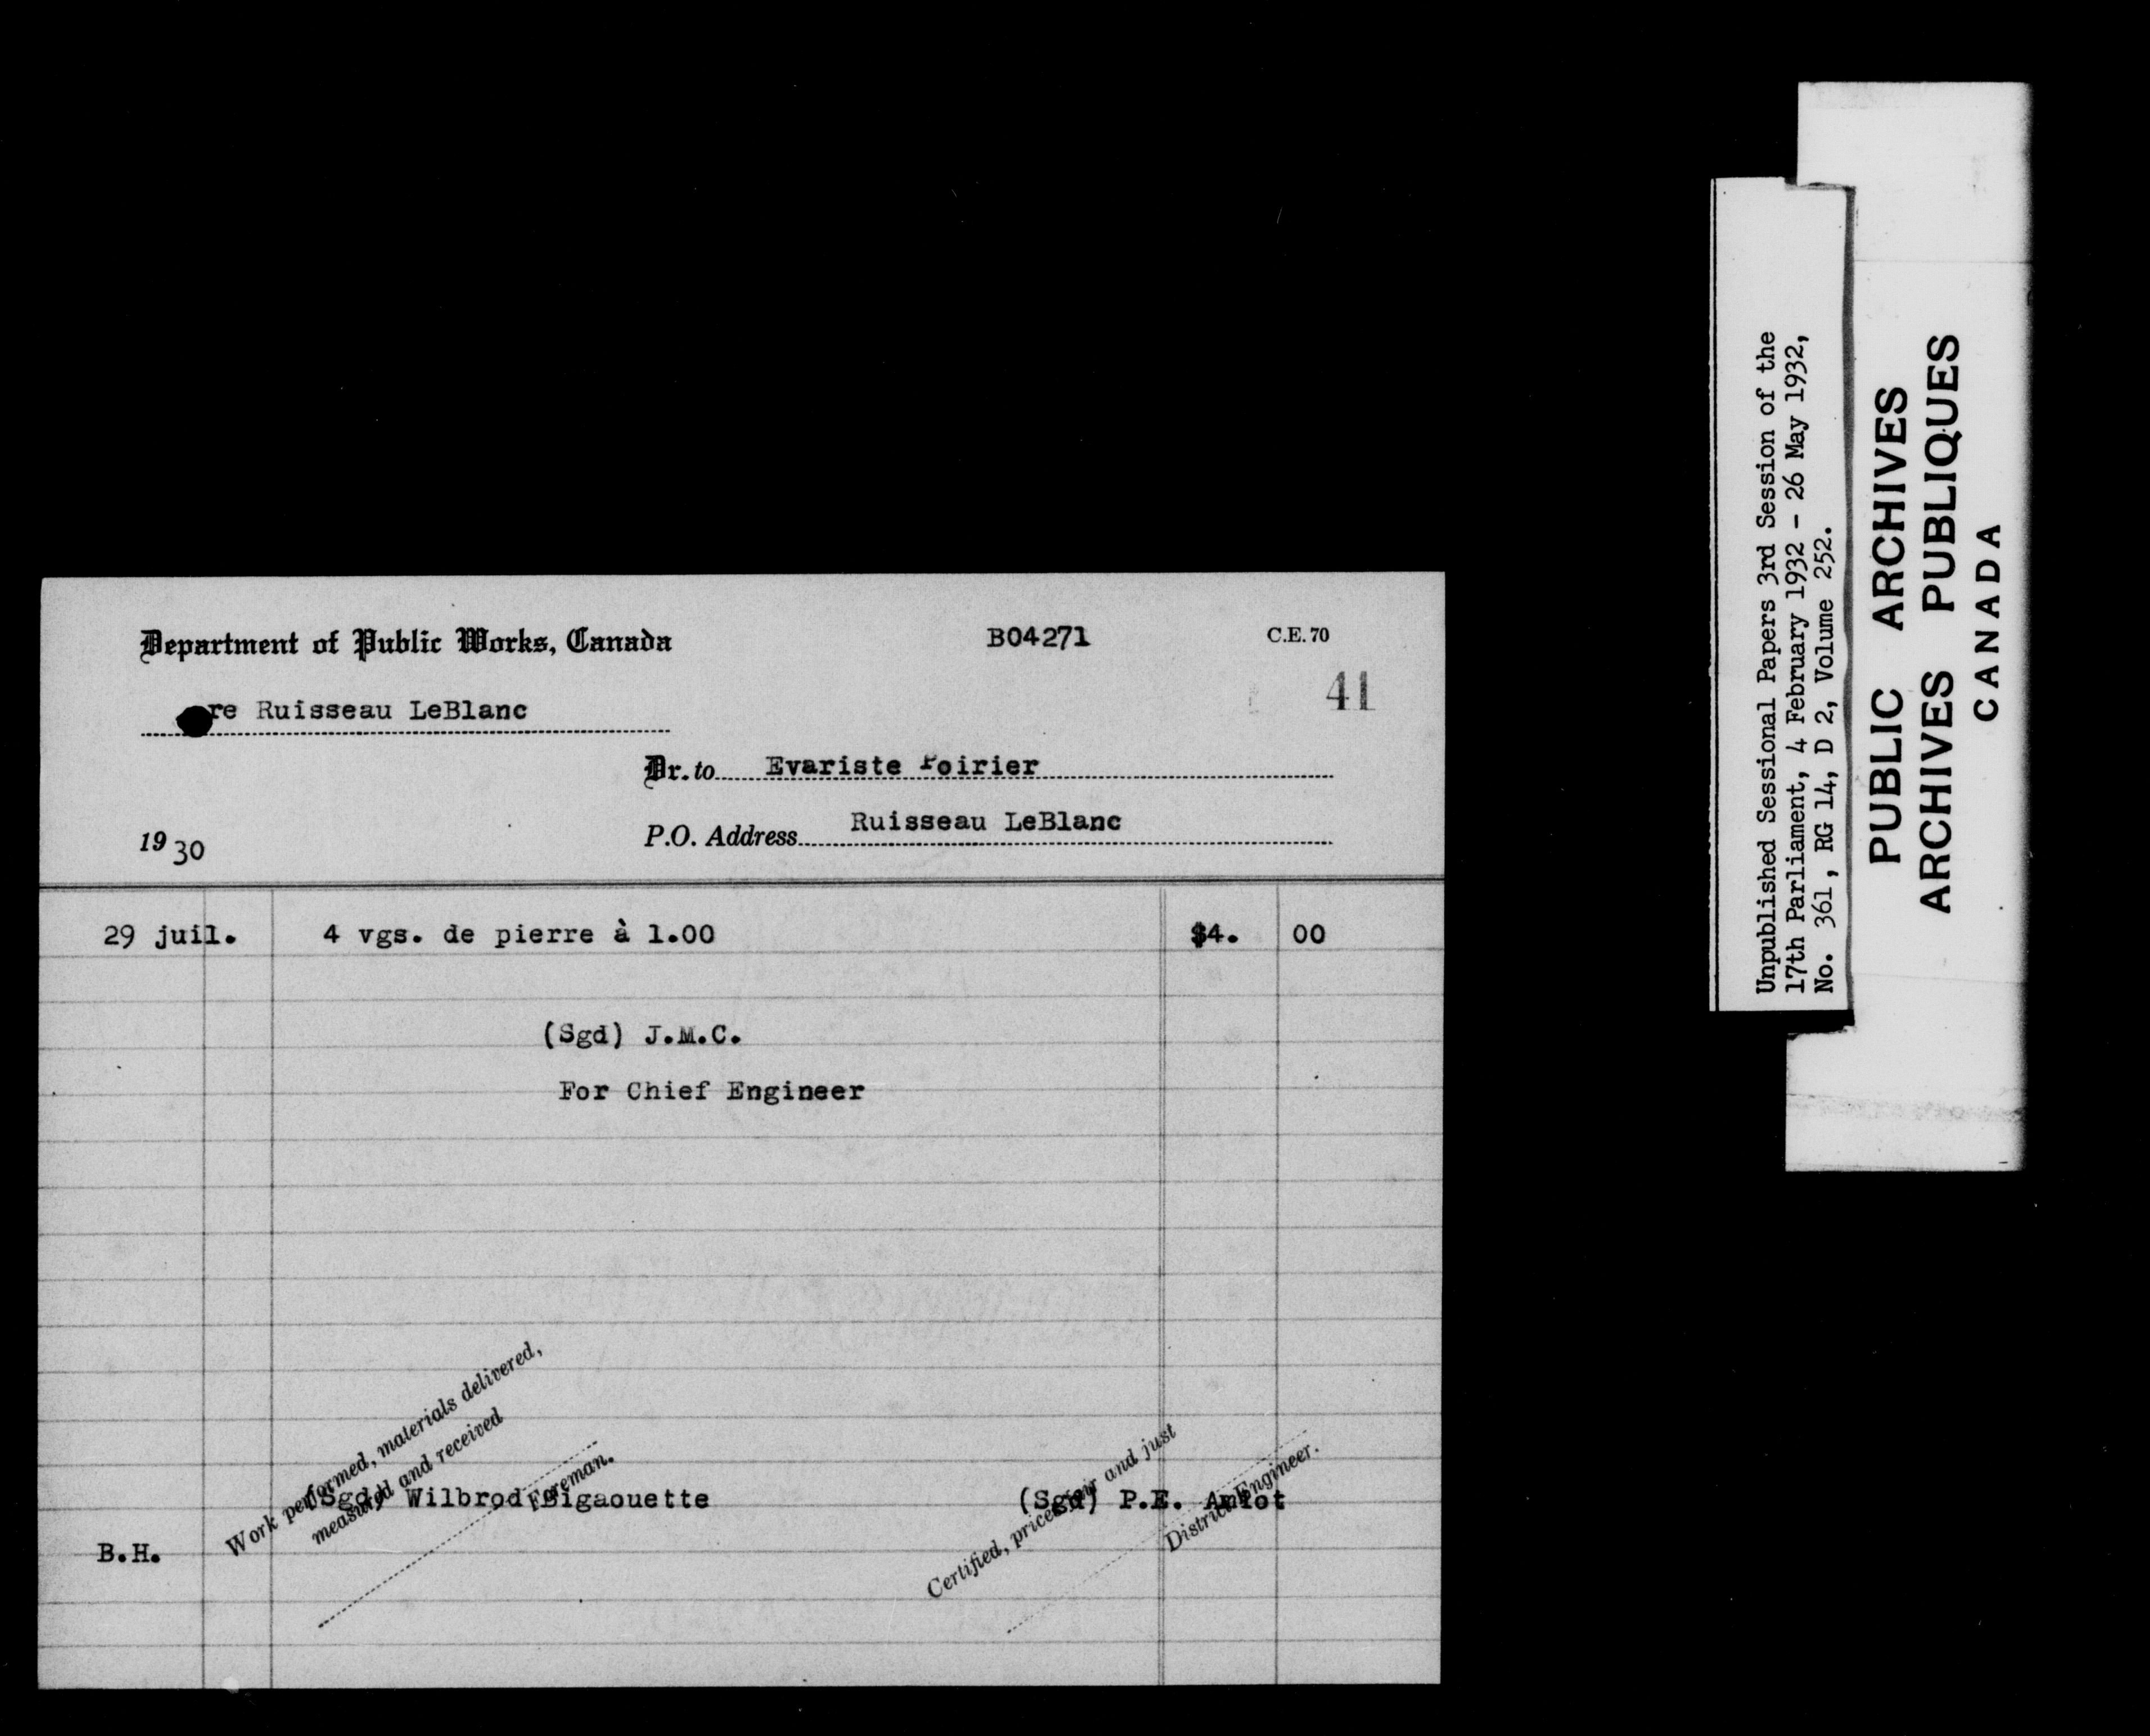 Department of Public Works, Canada
B04271
C.E. 70
41
re Ruisseau LeBlanc
Dr. to Evariste Poirier
P.O. Address Ruisseau LeBlanc
1930
29 juil. 4 vgs. de pierre à 1.00 $4. 00
(Sgd) J.M.C.
For Chief Engineer
Work performed, materials delivered,
measured and received
(Sgd) Wilbrod Bigaouette
Foreman.
Certified, prices fair and just
(Sgd) P.E. Amiot
District Engineer.
B.H.
Unpublished Sessional Papers 3rd Session of the
17th Parliament, 4 February 1932 - 26 May 1932,
No. 361, RG 14, D 2, Volume 252.
PUBLIC ARCHIVES
ARCHIVES PUBLIQUES
CANADA